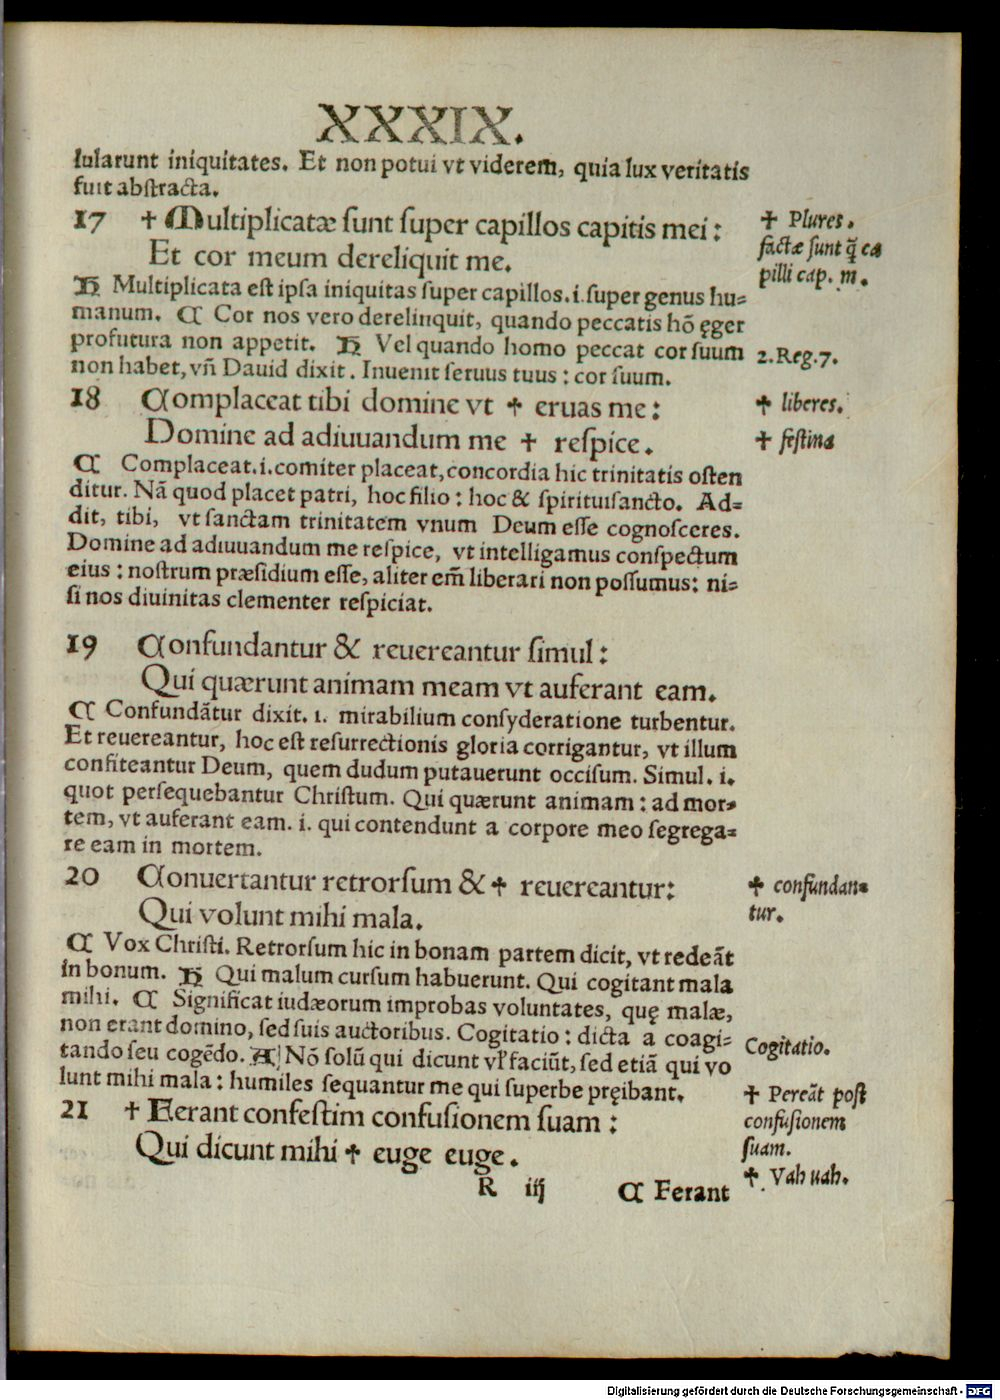 XXXIX.
lularunt iniquitates. Et non potui vt viderem, quia lux veritatis
fuit abstracta.
17 ✝ Multiplicatæ sunt super capillos capitis mei:
✝ Plures.
Et cor meum dereliquit me.
factæ sunt q̃ ca
pilli cap. m.
H Multiplicata est ipsa iniquitas super capillos.i.super genus hu=
manum. C Cor nos vero derelinquit, quando peccatis hõ ęger
profutura non appetit. H Vel quando homo peccat cor suum
2.Reg.7.
non habet, vñ Dauid dixit. Inuenit seruus tuus: cor suum.
18 Complaceat tibi domine vt ✝ eruas me:
✝ liberes.
Domine ad adiuuandum me ✝ respice.
✝ festina
C Complaceat.i.comiter placeat, concordia hic trinitatis osten
ditur. Nã quod placet patri, hoc filio: hoc & spirituisancto. Ad=
dit, tibi, vt sanctam trinitatem vnum Deum esse cognosceres.
Domine ad adiuuandum me respice, vt intelligamus conspectum
eius: nostrum præsidium esse, aliter em̃ liberari non possumus: ni=
si nos diuinitas clementer respiciat.
19 Confundantur & reuereantur simul:
Qui quærunt animam meam vt auferant eam.
C Confundãtur dixit. i. mirabilium consyderatione turbentur.
Et reuereantur, hoc est resurrectionis gloria corrigantur, vt illum
confiteantur Deum, quem dudum putauerunt occisum. Simul. i.
quot persequebantur Christum. Qui quærunt animam: ad mor=
tem, vt auferant eam. i. qui contendunt a corpore meo segrega=
re eam in mortem.
20 Conuertantur retrorsum & ✝ reuereantur:
✝ confundan=
tur.
Qui volunt mihi mala.
C Vox Christi. Retrorsum hic in bonam partem dicit, vt redeãt
in bonum. H Qui malum cursum habuerunt. Qui cogitant mala
mihi. C Significat iudæorum improbas voluntates, quę malæ,
non erant domino, sed suis auctoribus. Cogitatio: dicta a coagi=
Cogitatio.
tando seu cogẽdo. A Nõ solũ qui dicunt vl̃ faciũt, sed etiã qui vo
lunt mihi mala: humiles sequantur me qui superbe pręibant.
21 ✝ Ferant confestim confusionem suam:
✝ Pereãt post
confusionem
suam.
Qui dicunt mihi ✝ euge euge.
✝ Vah uah.
R iij
C Ferant
Digitalisierung gefördert durch die Deutsche Forschungsgemeinschaft - DFG